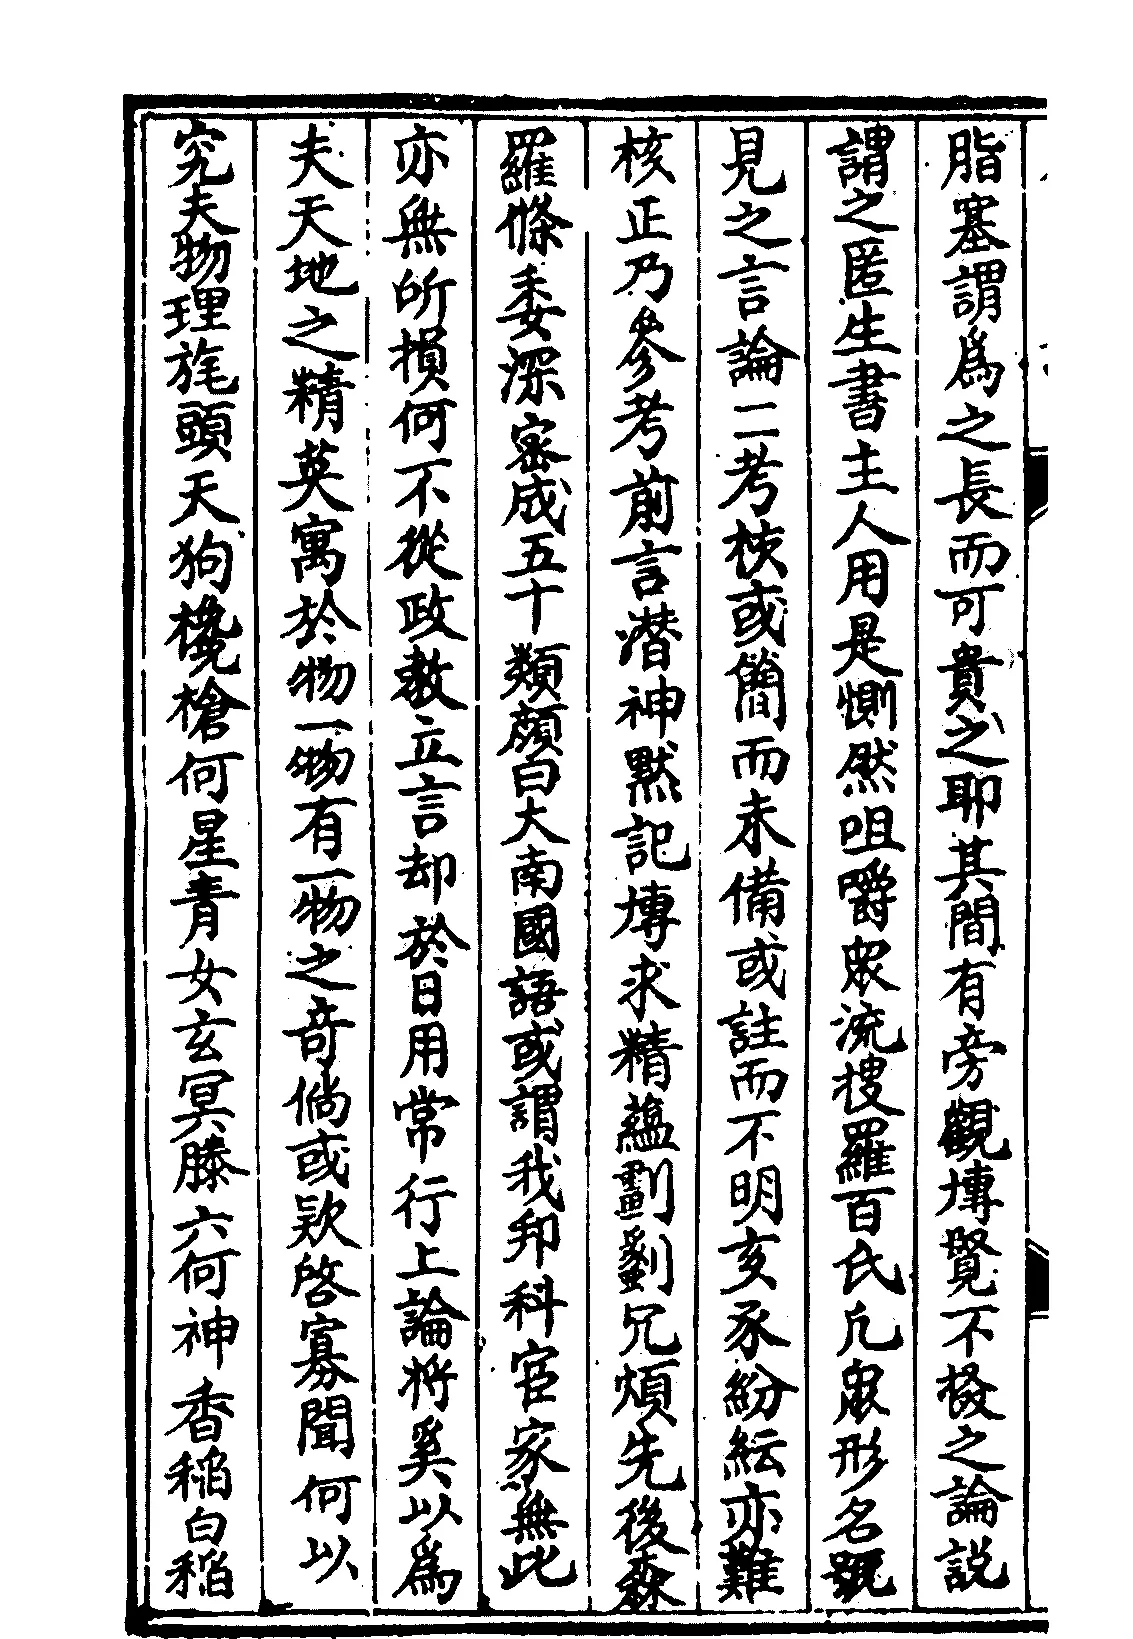 脂塞謂爲之長而可貴之耶其間有旁觀博覽不撥之論説
謂之匿生書主人用是惻然咀嚼衆流搜羅百氏凡衆形名號
見之言論二考核或簡而未備或註而不明亥豕紛紜亦難
核正乃參考前言潛神默記博求精蘊劃剗冗煩先後森
羅條委深密成五十類顔曰大南國語或謂我邦科宦家無此
亦無所損何不從政教立言却於日用常行上論將奚以爲
夫天地之精英寓於物一物有一物之竒倘或欵啓寡聞何以
究夫物理旄頭天狗欃槍何星青女玄冥滕六何神香稻白稻